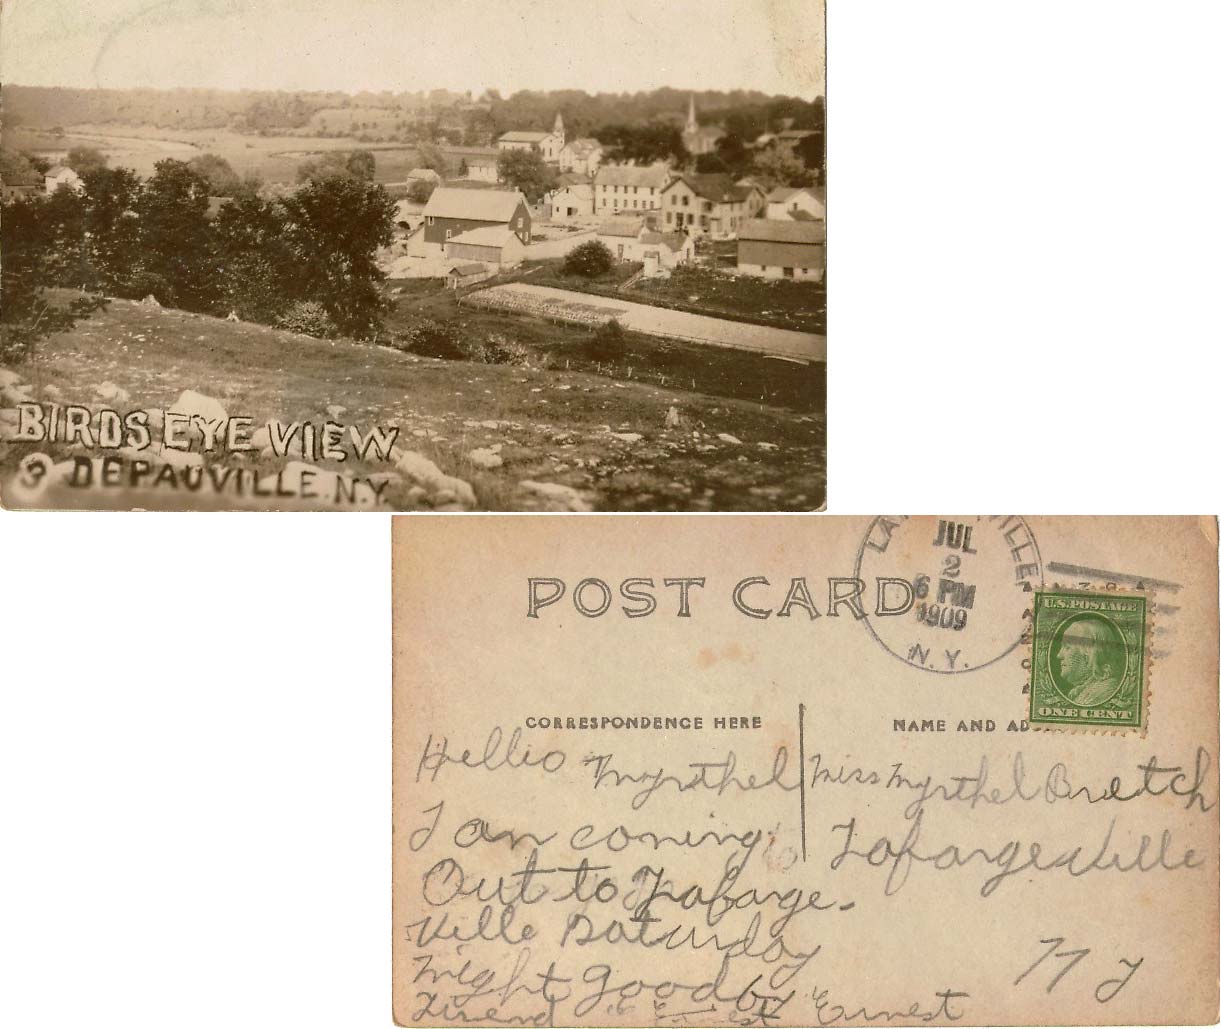 BIRDS EYE VIEW
DEPAUVILLE N.Y.
POST CARD
JUL
2
6 PM
1909
N.Y.
U.S. POSTAGE
ONE CENT
CORRESPONDENCE HERE
NAME AND AD
Hellio Myrthel
I an coming
Out to Lafarge-
Ville Saturday
night goodby
Friend Ernest Ernest
Miss Myrthel Bretch
Lafargeville
N Y